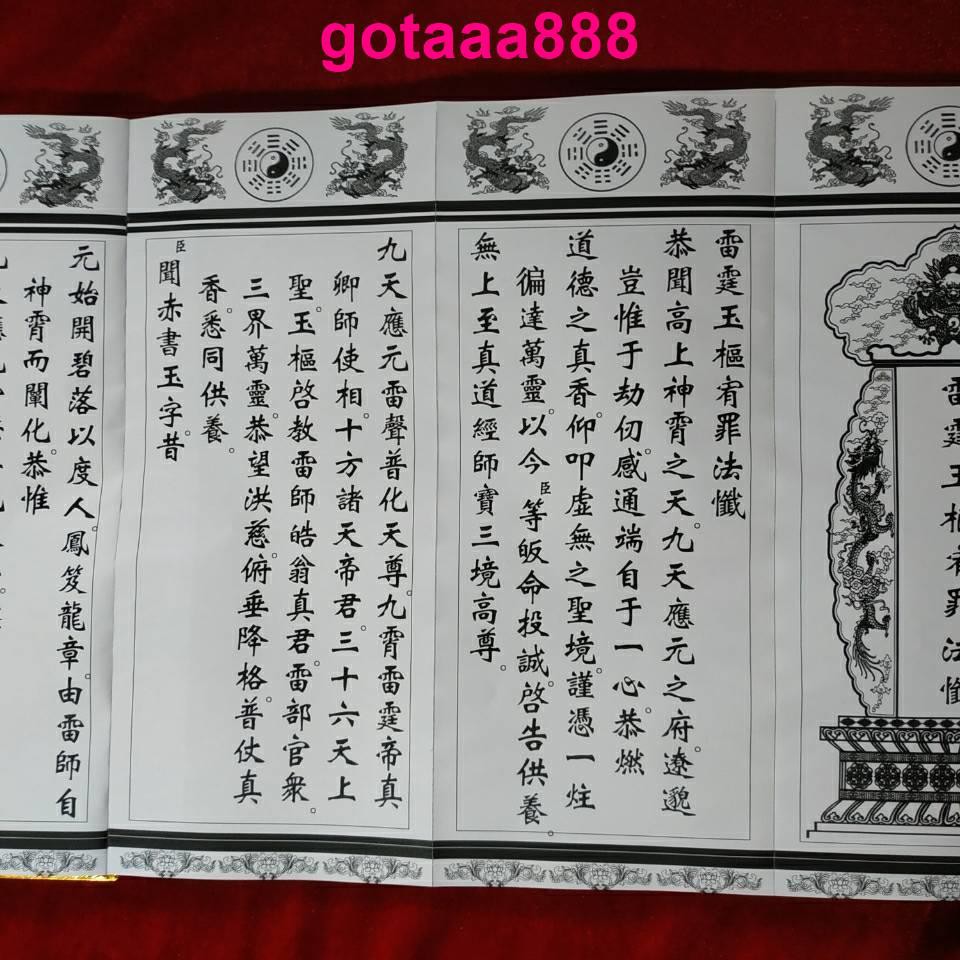 gotaaa888
雷霆玉樞宥罪法懺
雷霆玉樞宥罪法懺
恭聞高上神霄之天。九天應元之府。遼邈
豈惟于劫仞。感通端自于一心。恭燃
道德之真香。仰叩虛無之聖境。謹憑一炷
徧達萬靈。以今臣等皈命投誠。啓告供養。
無上至真道經師寶三境高尊。
九天應元雷聲普化天尊。九霄雷霆帝真
卿師使相。十方諸天帝君。三十六天上
聖。玉樞啓教雷師皓翁真君。雷部官衆。
三界萬靈。恭望洪慈。俯垂降格。普仗真
香。悉同供養。
臣聞赤書玉字。昔
元始開碧落以度人。鳳笈龍章。由雷師自
神霄而闡化。恭惟